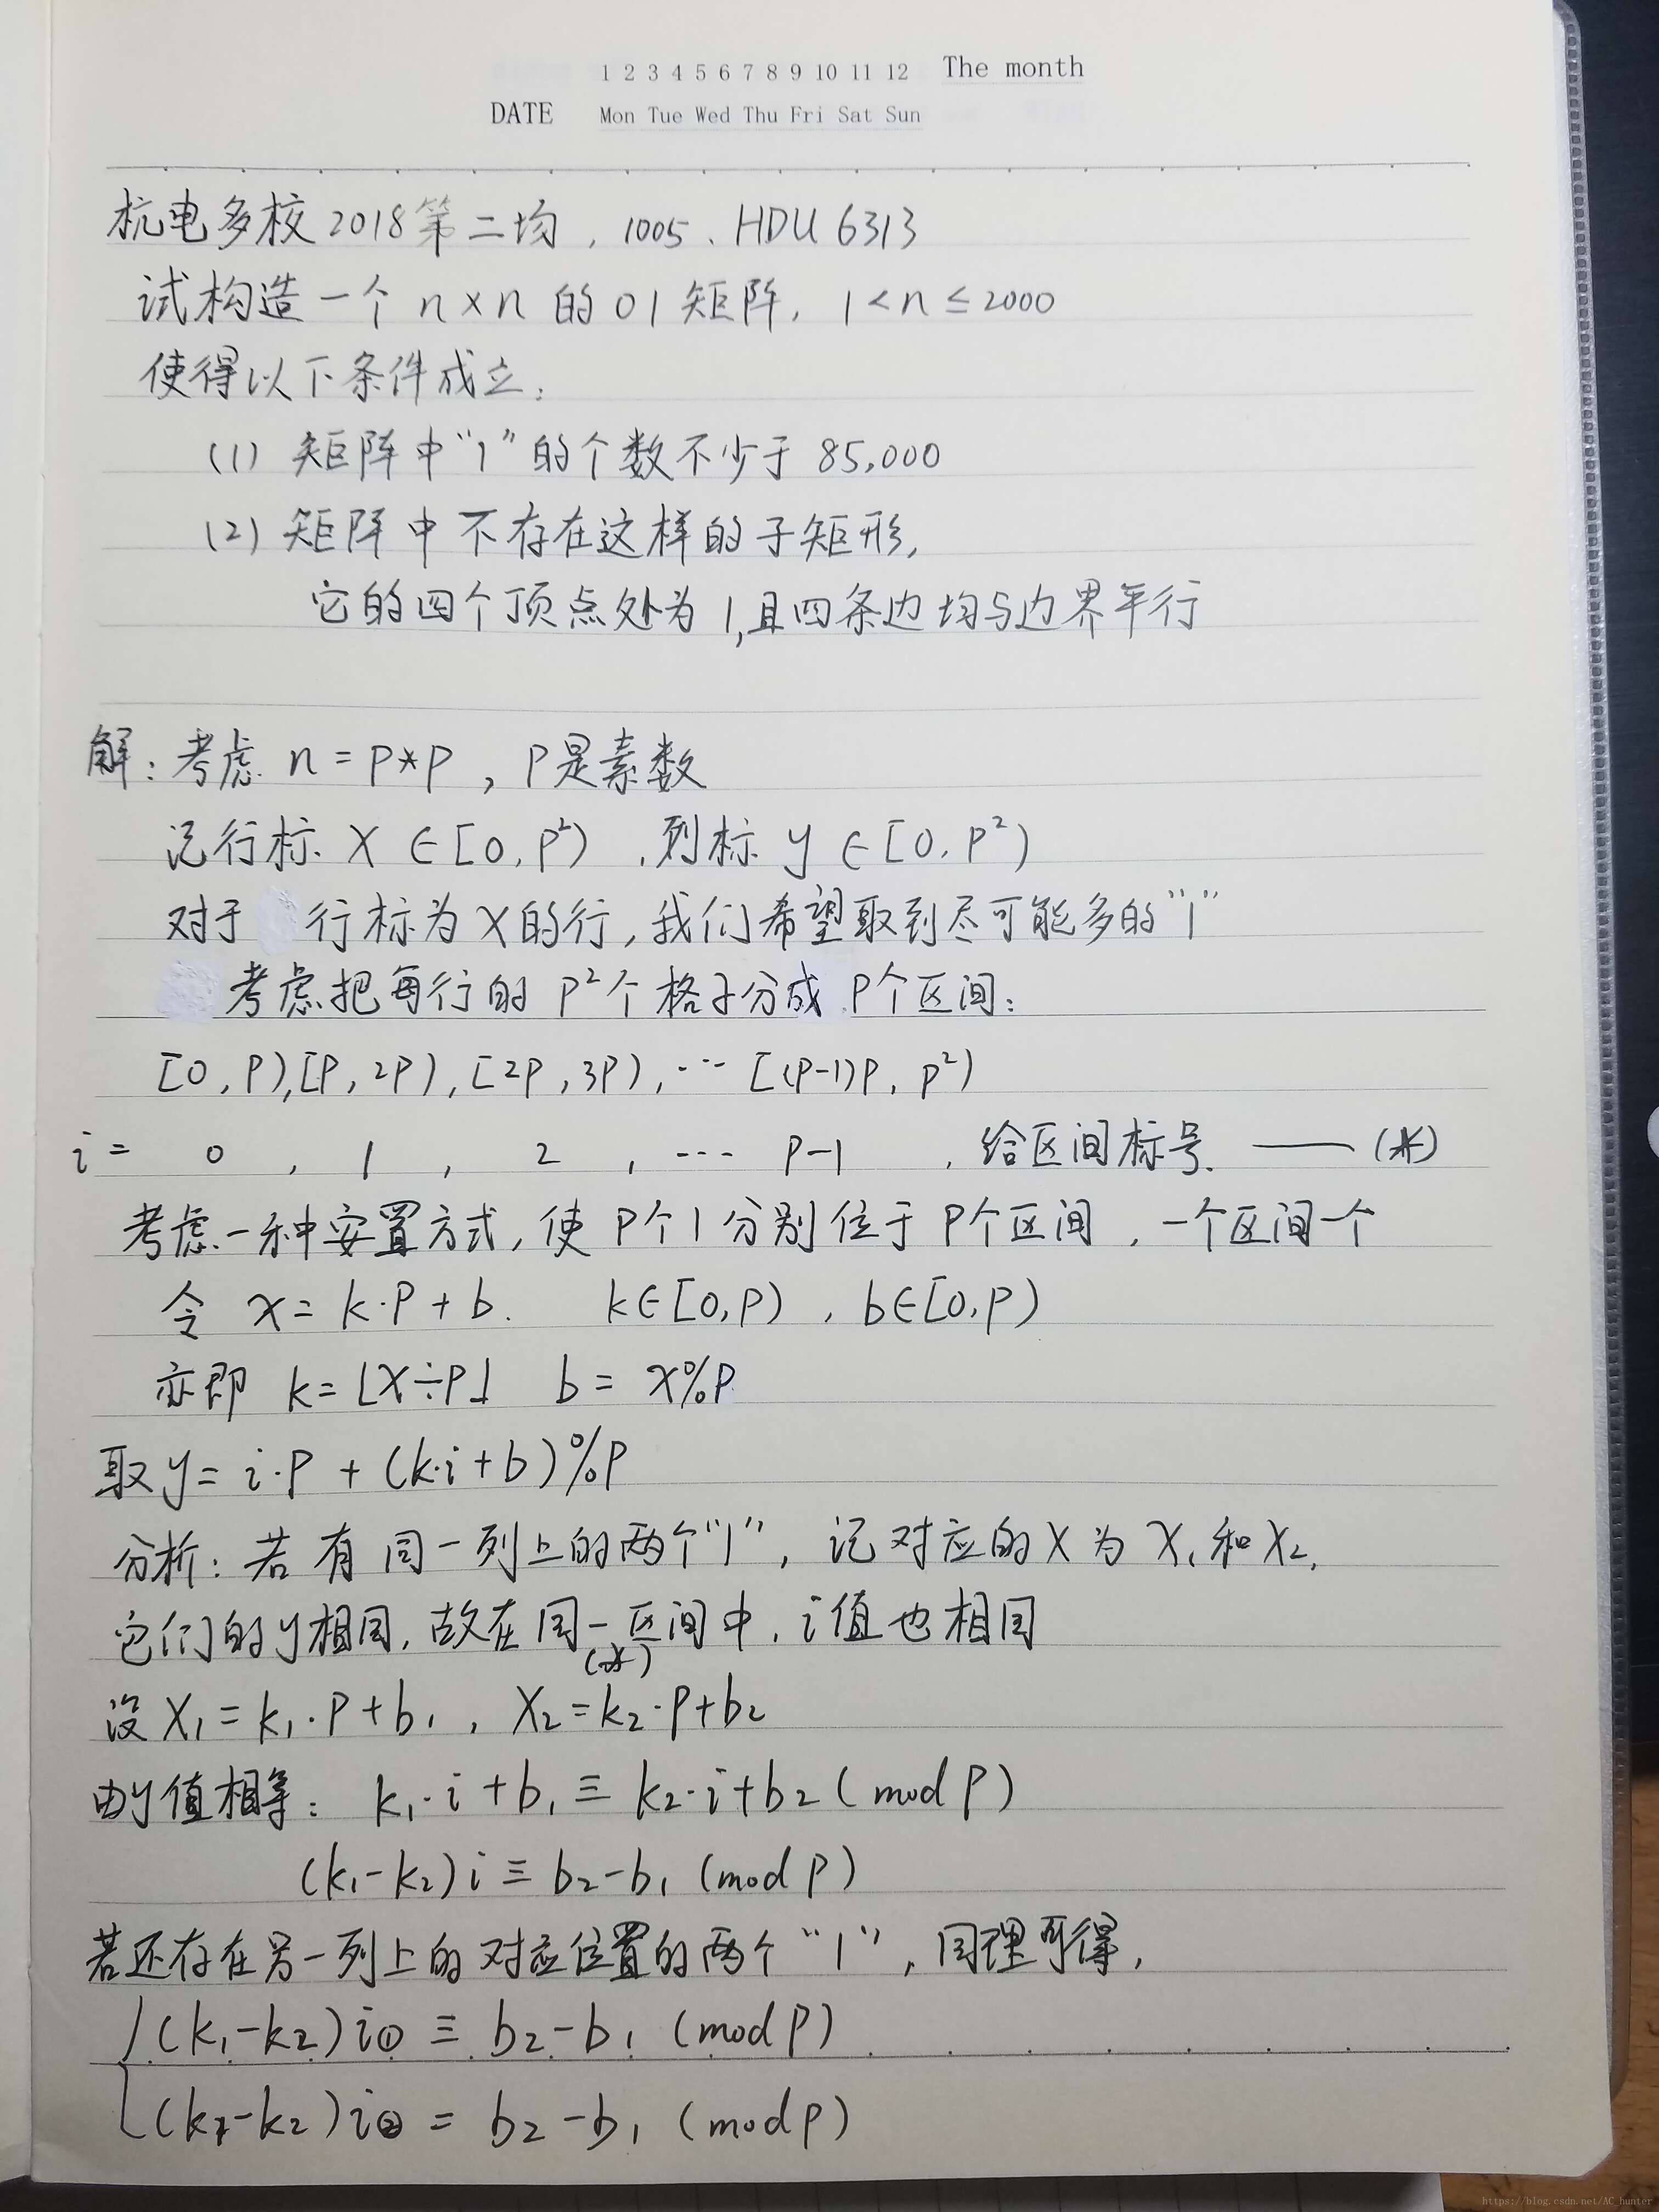 1 2 3 4 5 6 7 8 9 10 11 12 The month
DATE Mon Tue Wed Thu Fri Sat Sun
杭电多校2018第二均, 1005、HDU 6313
试构造一个 n×n 的01矩阵, 1<n≤2000
使得以下条件成立:
(1) 矩阵中“1”的个数不少于 85,000
(2) 矩阵中不存在这样的子矩形,
它的四个顶点处为1,且四条边均与边界平行
解: 考虑 n=p*p , P是素数
记行标 X∈[0,P²) , 列标 y∈[0,P²)
对于 行标为X的行, 我们希望取到尽可能多的“1”
考虑把每行的 P²个格子分成 P个区间:
[0,P),[P,2P),[2P,3P),… [(P-1)P, p²)
i= 0 , 1 , 2 , … P-1 , 给区间标号. —— (*)
考虑一种安置方式, 使P个1分别位于P个区间, 一个区间一个
令 x=k·P+b. k∈[0,P) , b∈[0,P)
亦即 k=⌊X÷P⌋ b= x%P
取y= i·P + (k·i+b)%P
分析: 若有同一列上的两个“1”, 记对应的X为 X₁和X₂,
它们的y相同, 故在同一区间中, i值也相同
(*)
设X₁=k₁·P+b₁ , X₂=k₂·P+b₂
由y值相等: k₁·i+b₁≡k₂·i+b₂(mod P)
(k₁-k₂)i≡b₂-b₁ (mod P)
若还存在另一列上的对应位置的两个“1”, 同理可得,
{(k₁-k₂)i① ≡ b₂-b₁ (mod P)
(k₁-k₂)i② = b₂-b₁ (mod P)
https://blog.csdn.net/AC_hunter